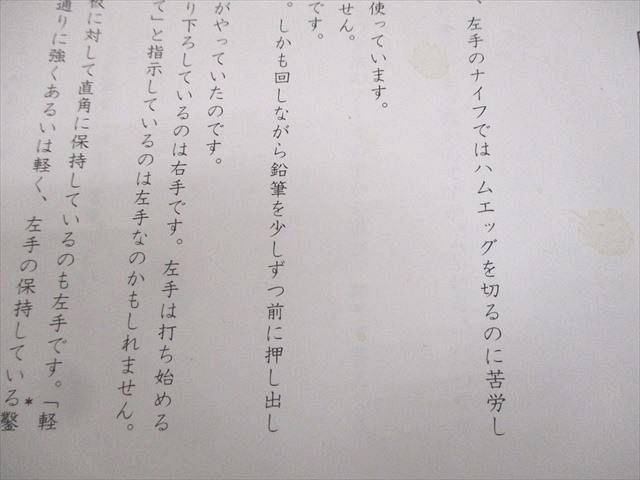 、左手のナイフではハムエッグを切るのに苦労し
使っています。
せん。
です。
。しかも回しながら鉛筆を少しずつ前に押し出し
がやっていたのです。
り下ろしているのは右手です。左手は打ち始める
て」と指示しているのは左手なのかもしれません。
板に対して直角に保持しているのも左手です。「軽
通りに強くあるいは軽く、左手の保持している*鑿